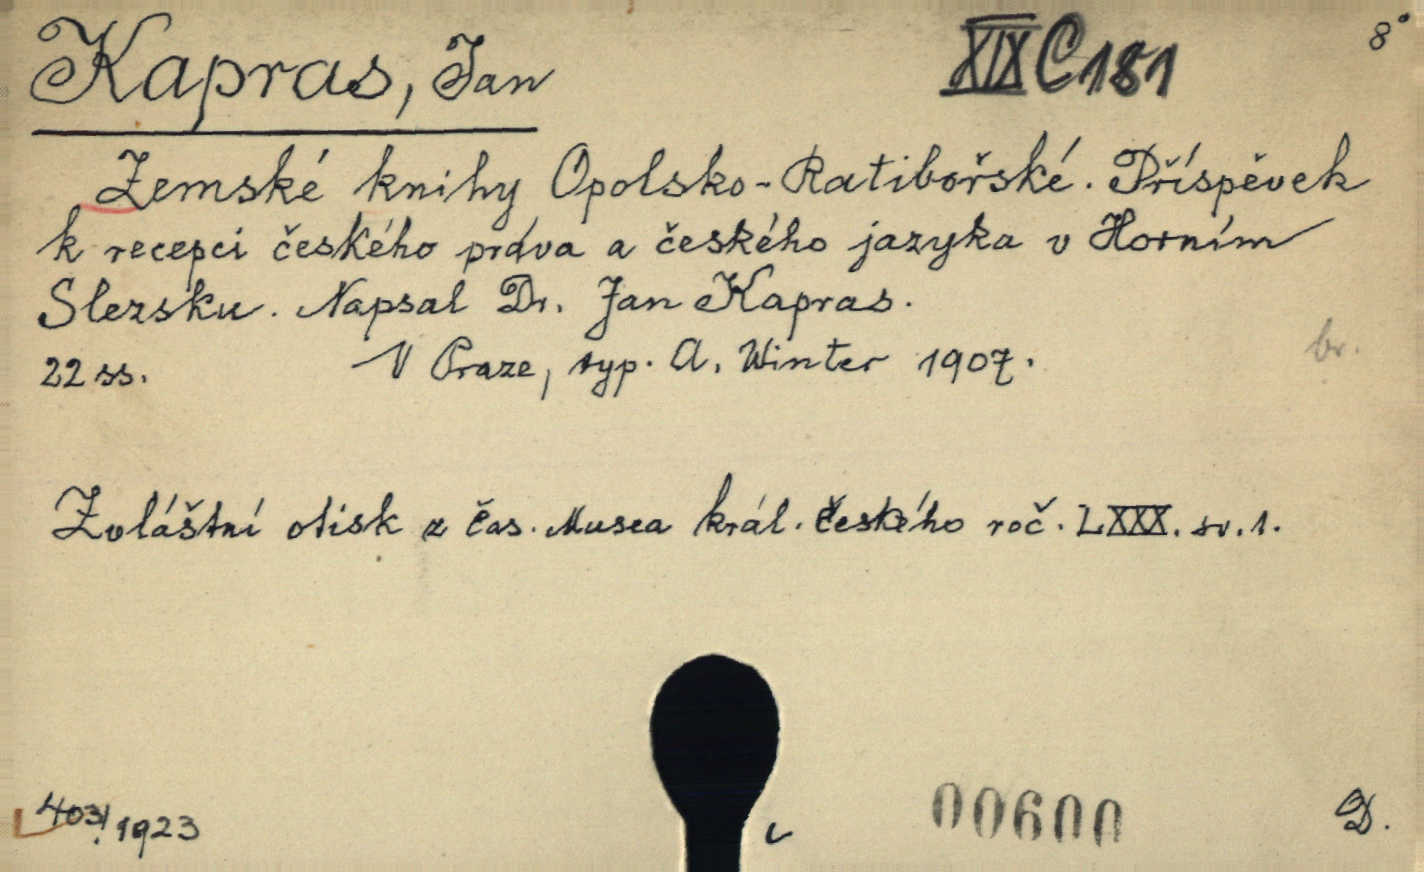 Kapras, Jan XIX C 181 8°
Zemské knihy Opolsko-Ratibořské. Příspěvek
k recepci českého práva a českého jazyka v Horním
Slezsku. Napsal Dr. Jan Kapras.
22 ss. V Praze, typ. A. Winter 1907. br.
Zvláštní otisk z čas. Musea král. českého roč. LXXX. sv. 1.
403/1923 00600 D.